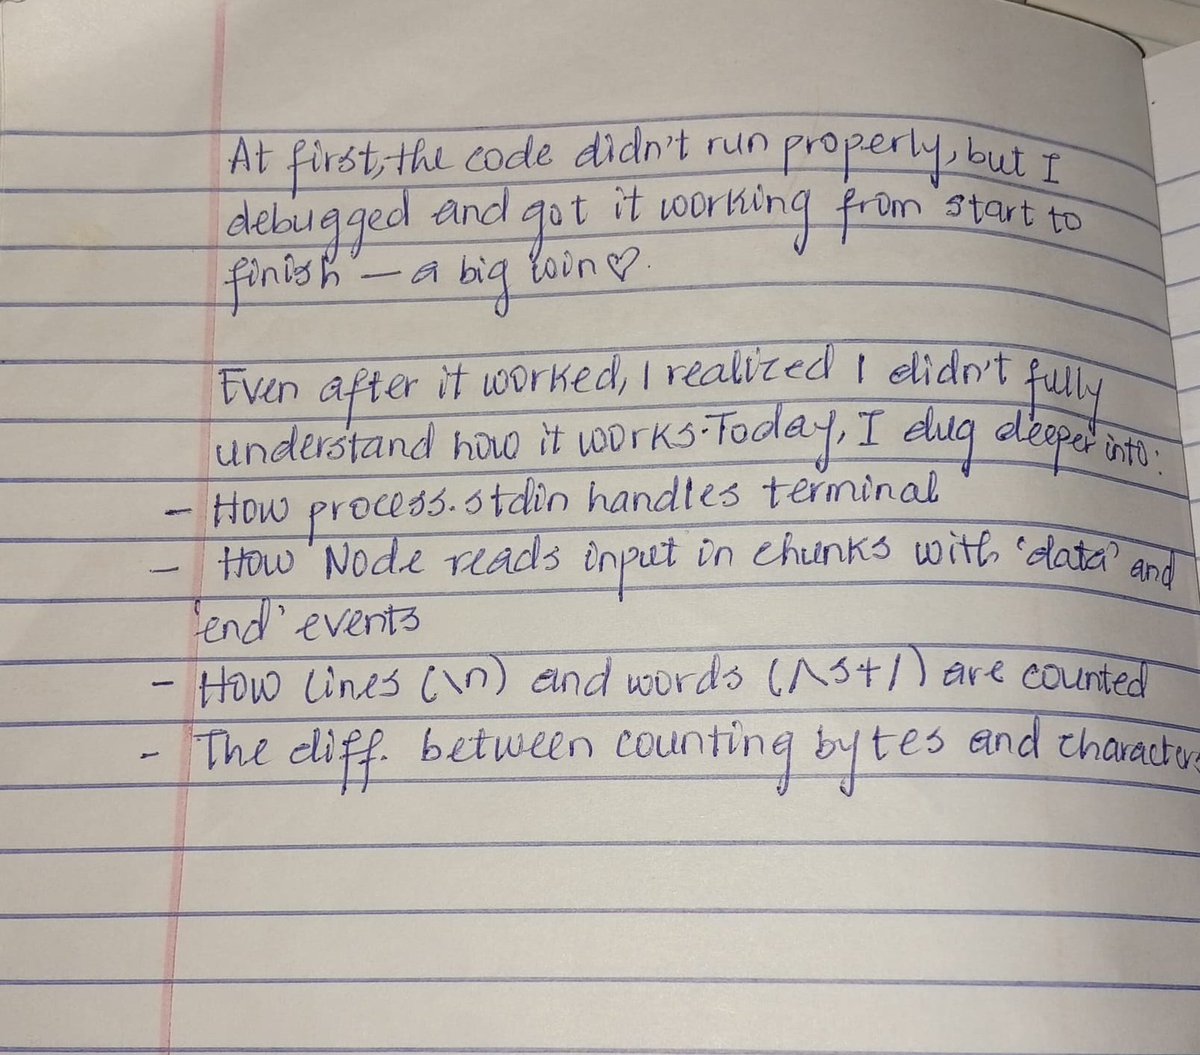 At first, the code didn't run properly, but I
debugged and got it working from start to
finish — a big win♡.
Even after it worked, I realized I didn't fully
understand how it works. Today, I dug deeper into:
- How process.stdin handles terminal
- How Node reads input in chunks with 'data' and
'end' events
- How lines (\n) and words (/\s+/) are counted
- The diff. between counting bytes and characters